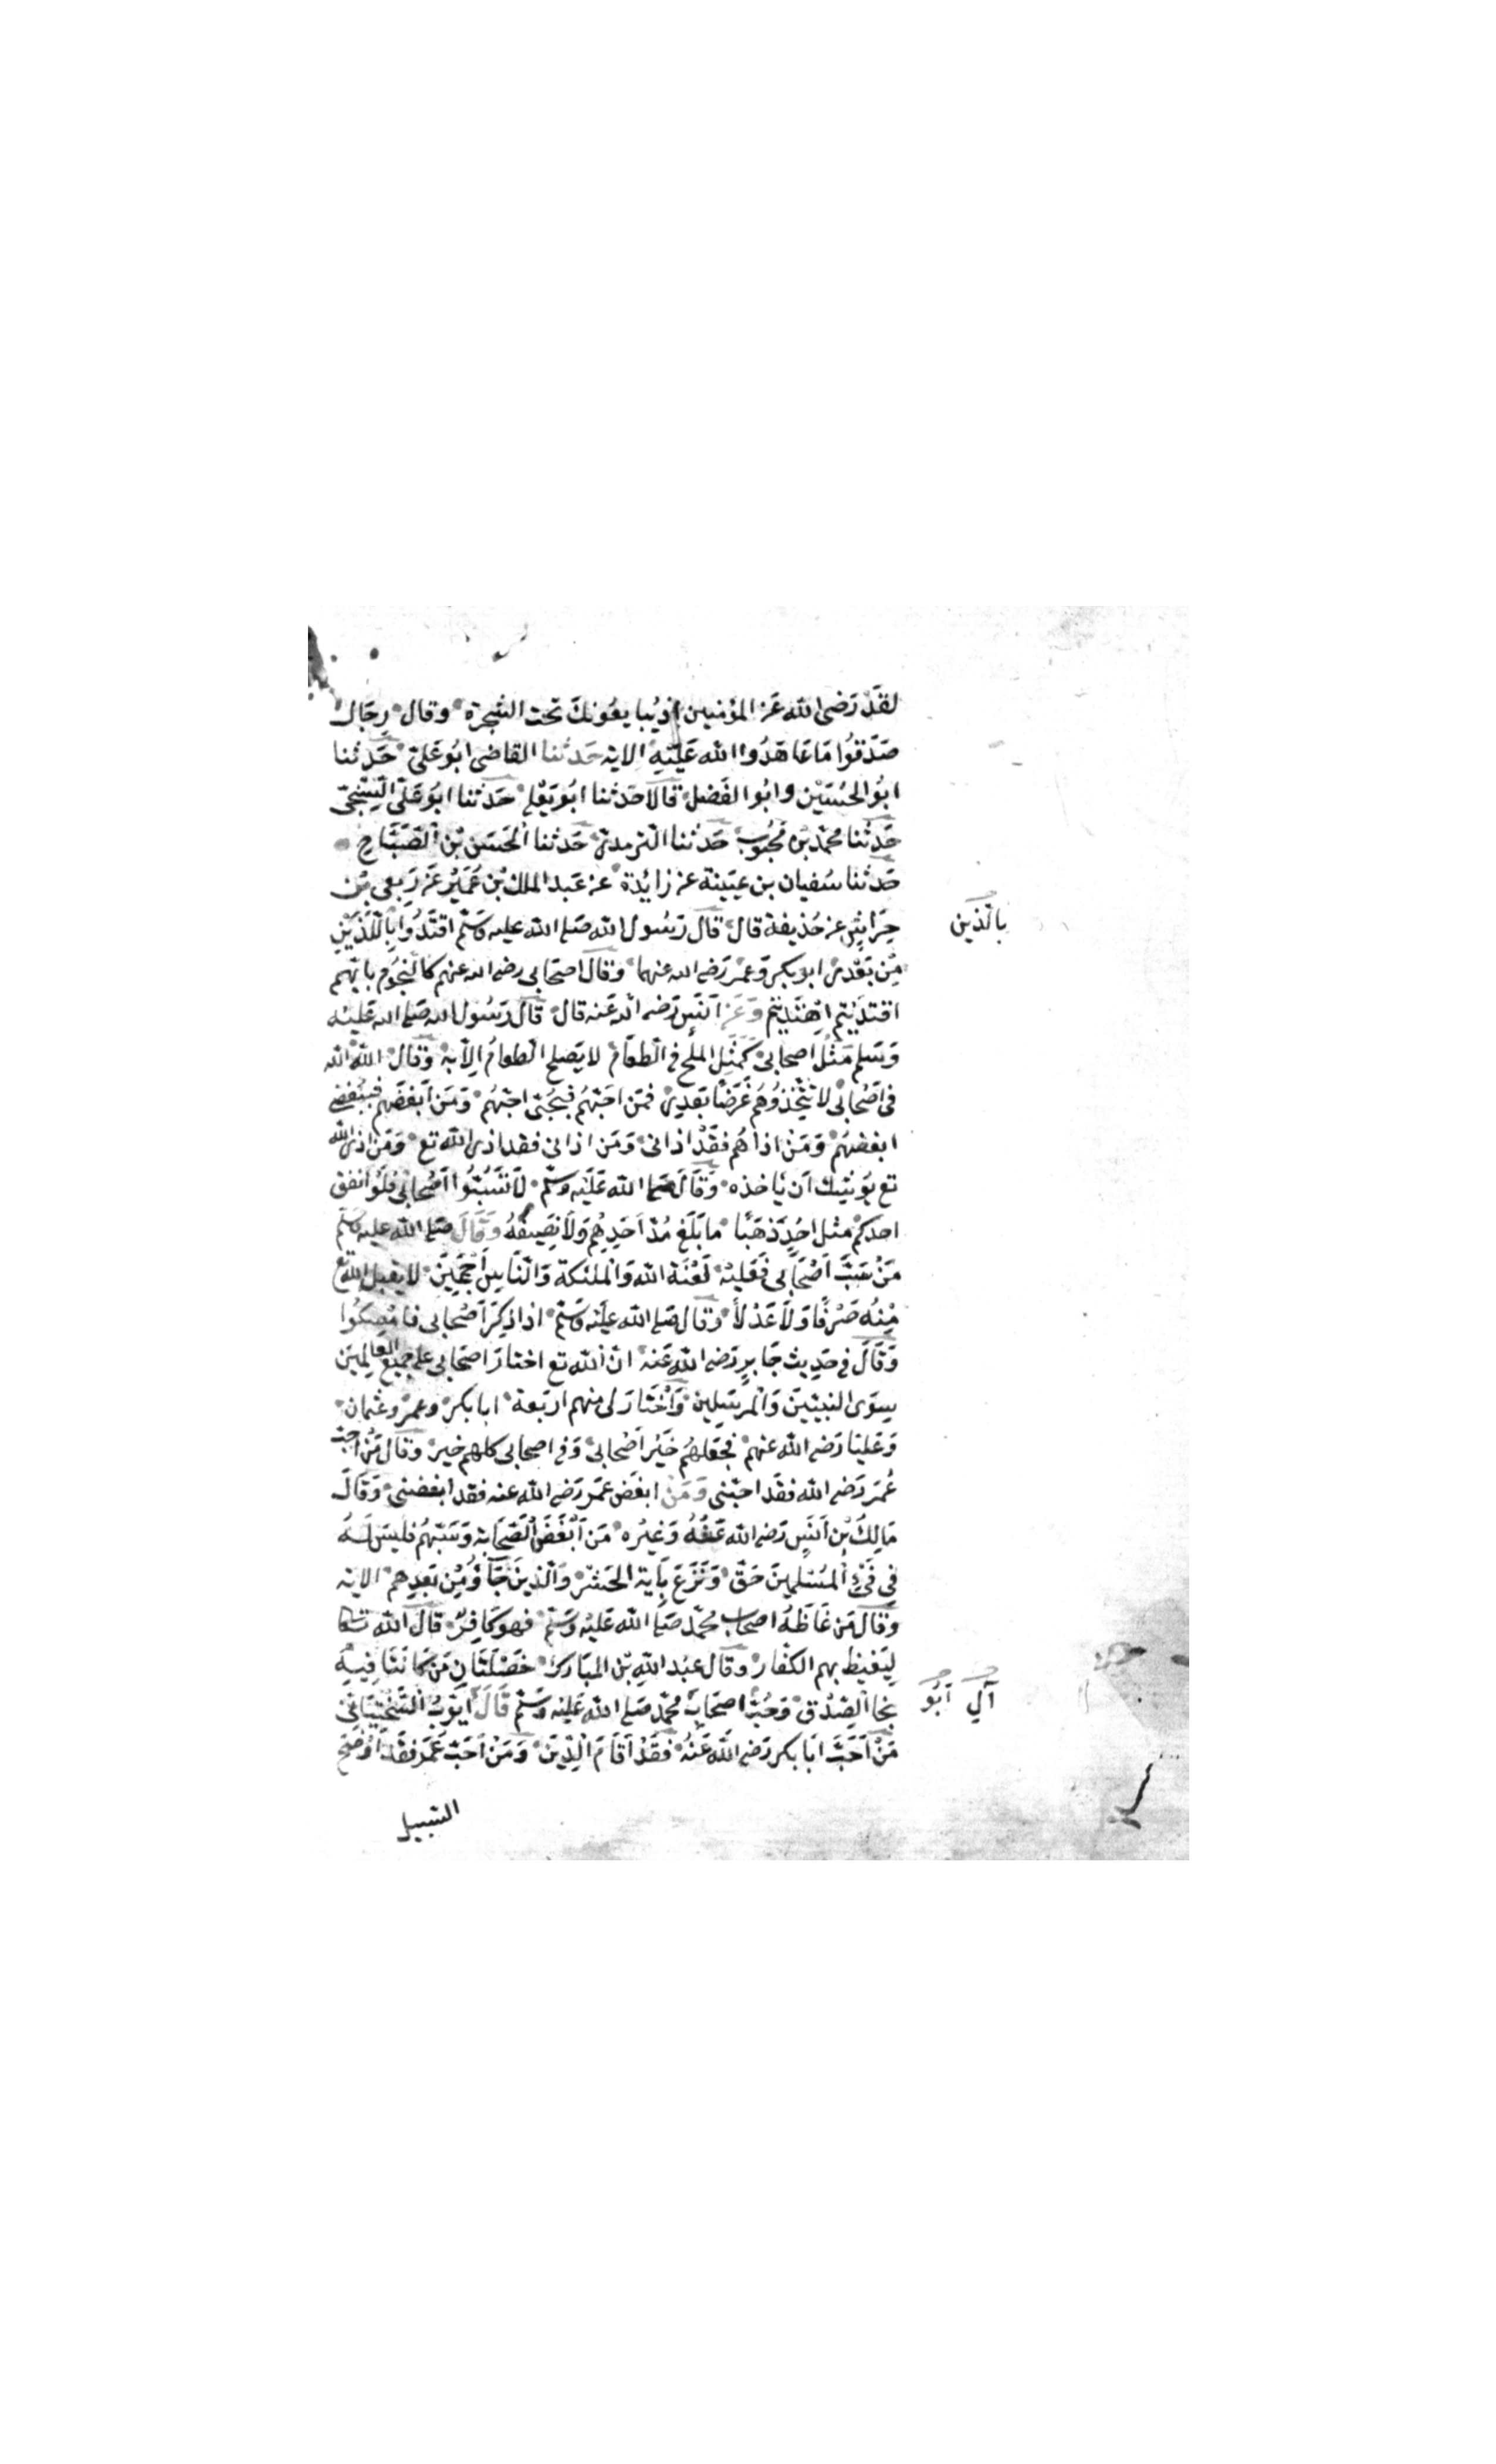 لقَدْ رَضيَ الله عَن المؤمنين اذ يُبايعُونَكَ تحت الشجرة وقال رِجَال
صَدَقُوا مَا عَاهَدُوا الله عَلَيْهِ الاية حَدثنا القاضى ابُو عَلى حَدثنا
ابُو الحُسَيْن وابُو الفَضل قالا حَدثنا ابُو يَعْلى حَدثنا ابُو عَلى السِّنْجىّ
حَدثنا محمّد بن مَحْبُوب حَدثنا الترمذىّ حَدثنا الحَسَن بْن الصَّبَّاح
حَدثنا سُفيان بن عيَينة عن زائِدة عن عَبد الملك بْن عُمَيْر عَن رَبعى بْن
حِرَاشٍ عن حُذيفة قال قال رَسُول الله صَلى الله عليه وَسَلّم اقتَدُوا بِاللَّذَيْنِ
بالّذين
مِنْ بَعْدى ابو بكر وَعمَر رَضى الله عنهما وَقال اصحَابى رضى الله عنهم كالنجُوم بايّهم
اقتدَيْتم اهْتَدَيْتم وَعَن اَنَسٍ رَضى الله عَنه قال قالَ رَسُول الله صَلى الله عَليْه
وَسَلم مَثَلُ اَصحابى كَمَثَلِ المِلْح فى الطعَام لا يَصلح الطعامُ الاّ به وَقال الله الله
فى اَصْحابى لا تَتَّخِذُوهُمْ غَرَضًا بَعْدِى فمَن احَبّهُم فبحُبّى احبّهُم وَمَن اَبغَضَهم فببُغضى
ابغضهُم وَمَنْ اذاهُم فقَدْ اذانى وَمَن اذانى فقد اذى الله تع وَمَن اذى الله
تع يُوشِك اَن يَاخذه وَقَالَ صَلى الله عَلَيْه وَسلّم لا تَسُبُّوا اَصْحابى فَلَوْ انفق
احدكمْ مثل احُدٍ ذَهَبًا ما بَلَغ مُدّ اَحَدِهِمْ وَلا نَصِيفَهُ وَقَالَ صَلى الله عليه وسَلّم
مَنْ سَبَّ اَصْحَابى فَعَليْه لَعْنَة الله وَالْملئكة وَالنَّاسِ اَجْمَعِينَ لا يقبل الله تع
مِنْهُ صَرْفًا وَلا عَدْلاً وَقال صَلى الله عَلَيْه وَسَلّم اذا ذُكِرَ اَصْحابى فامْسِكُوا
وَقَالَ فى حَدِيث جَابِر رَضى الله عَنه انّ الله تع اختارَ اصحَابى على جميع العالمِيَن
سِوَى النبيّينَ وَالْمرسَلين وَاْختَارَ لى منهم اربَعة ابا بكر وعمر وعثمان
وَعَليًا رَضى الله عنهم فجَعَلهُمْ خَيْر اَصْحابى وَفى اصحابى كلهم خير وَقال مَنْ احبّ
عُمَر رَضى الله فقَد احبّنى وَمَنْ ابغَض عمَر رَضى الله عنه فقد ابغضنى وَقَالَ
مَالِكُ بْن اَنَسٍ رَضى الله عَنهُ وَغيْره مَن اَبْغَضَ الصّحَابة وَسَبّهُم فليسَ لَهُ
فِى فَىْءِ المسْلمِينَ حَقّ وَنَزَعَ بآية الحَشر وَالّذينَ جَاؤُ مِنْ بَعْدِهم الاية
وَقالَ مَن غَاظَهُ اصحَاب محمّد صَلى الله عَليْه وَسَلّم فهو كَافِرٌ قالَ الله تَعَالى
لِيَغيظ بهم الكفّار وقال عبْد اللهِ بْن المبَارك خَصْلَتَانِ مَنْ كَانَتَا فِيْهِ
نجا الصِّدْق وَحُبّ اصحَاب محمّد صَلى الله عَليْه وَسَلّم قَالَ اَيّوبُ السَّخْتِيَانِى
آلِ اَبُو
مَنْ اَحَبَّ ابَا بكر رَضى الله عَنْهُ فَقَدْ اَقَامَ الدِّيَن وَمَنْ اَحَبّ عُمَر فقَدْ اَوْضَحَ
السّبيل